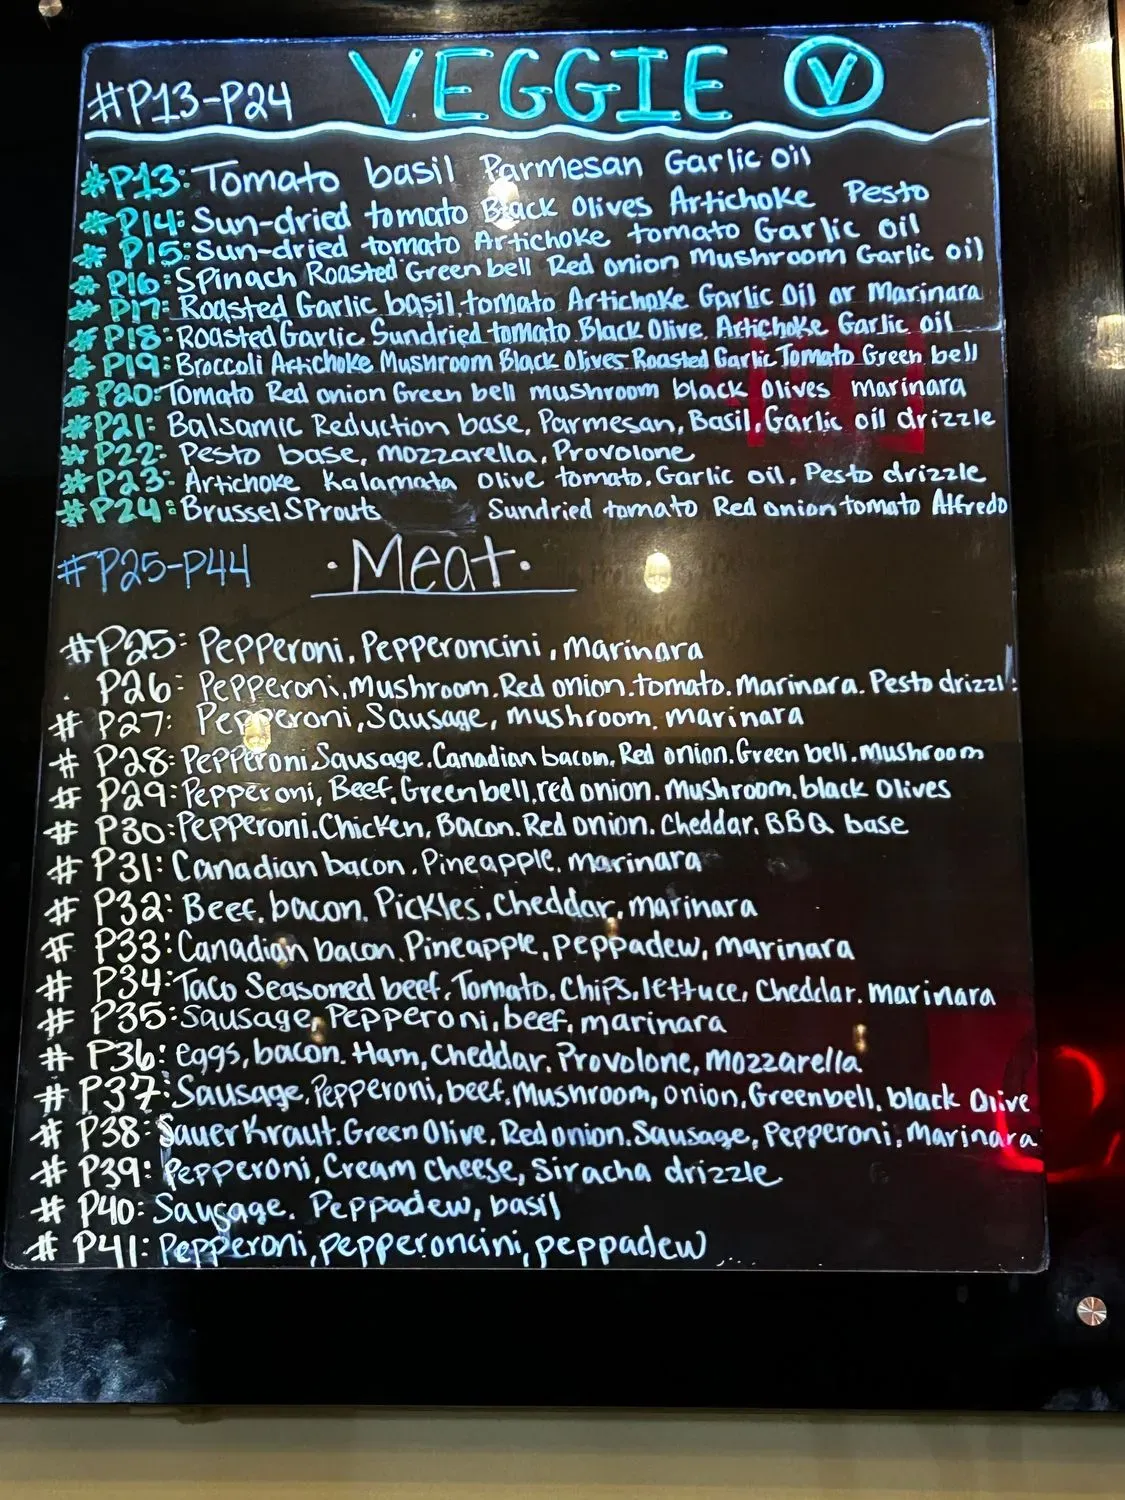 #P13-P24 VEGGIE V
#P13: Tomato basil Parmesan Garlic oil
#P14: Sun-dried tomato Black Olives Artichoke Pesto
#P15: Sun-dried tomato Artichoke tomato Garlic oil
#P16: Spinach Roasted Green bell Red onion Mushroom Garlic oil
#P17: Roasted Garlic basil, tomato Artichoke Garlic Oil or Marinara
#P18: Roasted Garlic Sundried tomato Black Olive Artichoke Garlic oil
#P19: Broccoli Artichoke Mushroom Black Olives Roasted Garlic Tomato Green bell
#P20: Tomato Red onion Green bell mushroom black Olives marinara
#P21: Balsamic Reduction base, Parmesan, Basil, Garlic oil drizzle
#P22: Pesto base, mozzarella, Provolone
#P23: Artichoke Kalamata Olive tomato, Garlic oil, Pesto drizzle
#P24: Brussel Sprouts Sundried tomato Red onion tomato Alfredo
#P25-P44 · Meat ·
#P25: Pepperoni, Pepperoncini, marinara
P26: Pepperoni, Mushroom, Red onion, tomato, Marinara, Pesto drizzl
# P27: Pepperoni, Sausage, mushroom, marinara
# P28: Pepperoni, Sausage, Canadian bacon, Red onion, Green bell, Mushroom
# P29: Pepperoni, Beef, Green bell, red onion, Mushroom, black Olives
# P30: Pepperoni, Chicken, Bacon, Red onion, Cheddar, BBQ base
# P31: Canadian bacon, Pineapple, marinara
# P32: Beef, bacon, Pickles, Cheddar, marinara
# P33: Canadian bacon, Pineapple, peppadew, marinara
# P34: Taco Seasoned beef, Tomato, Chips, lettuce, Cheddar, marinara
# P35: Sausage, Pepperoni, beef, marinara
# P36: eggs, bacon, Ham, Cheddar, Provolone, mozzarella
# P37: Sausage, Pepperoni, beef, Mushroom, onion, Green bell, black Olive
# P38: Sauer Kraut, Green Olive, Red onion, Sausage, Pepperoni, Marinara
# P39: Pepperoni, Cream cheese, Siracha drizzle
# P40: Sausage, Peppadew, basil
# P41: Pepperoni, pepperoncini, peppadew